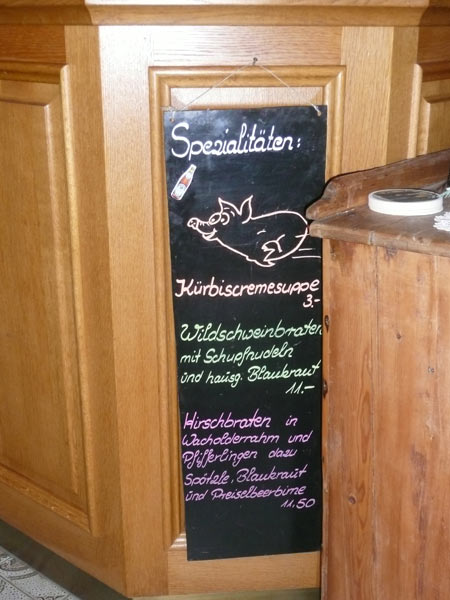 Spezialitäten:
Kürbiscremesuppe
3.-
Wildschweinbraten
mit Schupfnudeln
und hausg. Blaukraut
11.-
Hirschbraten in
Wacholderrahm und
Pfifferlingen dazu
Spätzle, Blaukraut
und Preiselbeerbirne
11,50